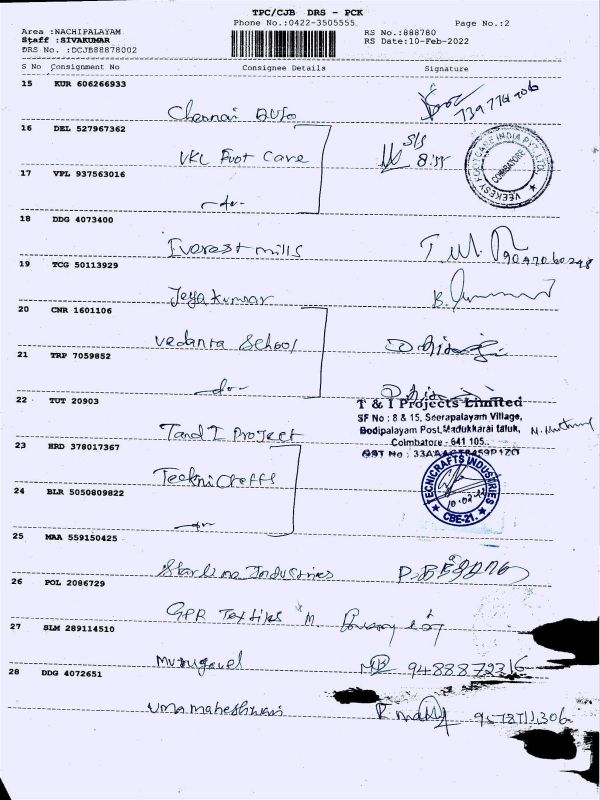 TPC/CJB DRS - PCK
Phone No.:0422-3505555
Page No.:2
Area :NACHIPALAYAM
RS No.:888780
Staff :SIVAKUMAR
RS Date:10-Feb-2022
DRS No. :DCJB88878002
S No Consignment No Consignee Details Signature
15 KUR 606266933
Chennai Auto
16 DEL 527967362
VKL Foot Care
VEEKESY FOOTCARE INDIA PVT LTD.
COIMBATORE
17 VPL 937563016
-do-
18 DDG 4073400
Everest mills
9047060248
19 TCG 50113929
Jeyakumar
20 CNR 1601106
Vedanta School
21 TRP 7059852
-do-
22 TUT 20903
T & I Projects Limited
SF No : 8 & 15, Seerapalayam Village,
Bodipalayam Post, Madukkarai taluk,
Coimbatore - 641 105.
T and I Project
23 HRD 378017367
Techni Crafts
TECNICRAFTS INDUSTRIES
CBE-21.
24 BLR 5050809822
-do-
25 MAA 559150425
Starline Industries
26 POL 2086729
GPR Textiles
27 SLM 289114510
Murugavel
9488872316
28 DDG 4072651
Uma maheshwari